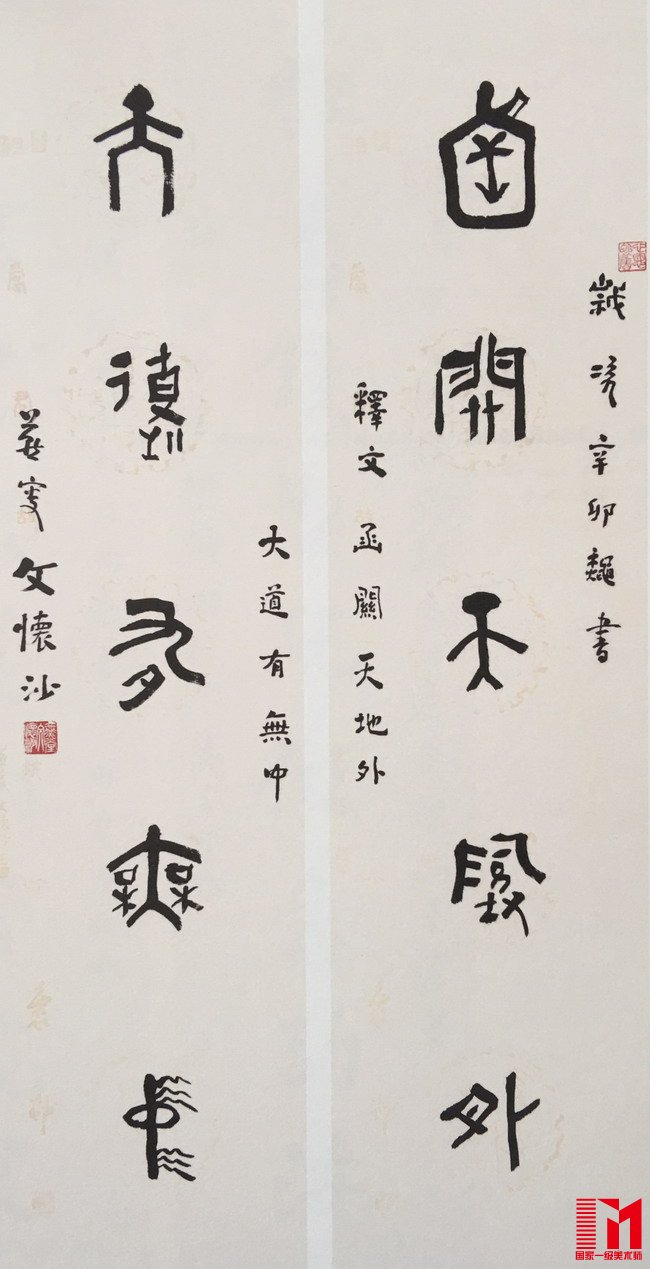 歲次辛卯龝書
函關天地外
釋文函關天地外
大道有無中
大道有無中
燕叟文懷沙
国家一级美术师